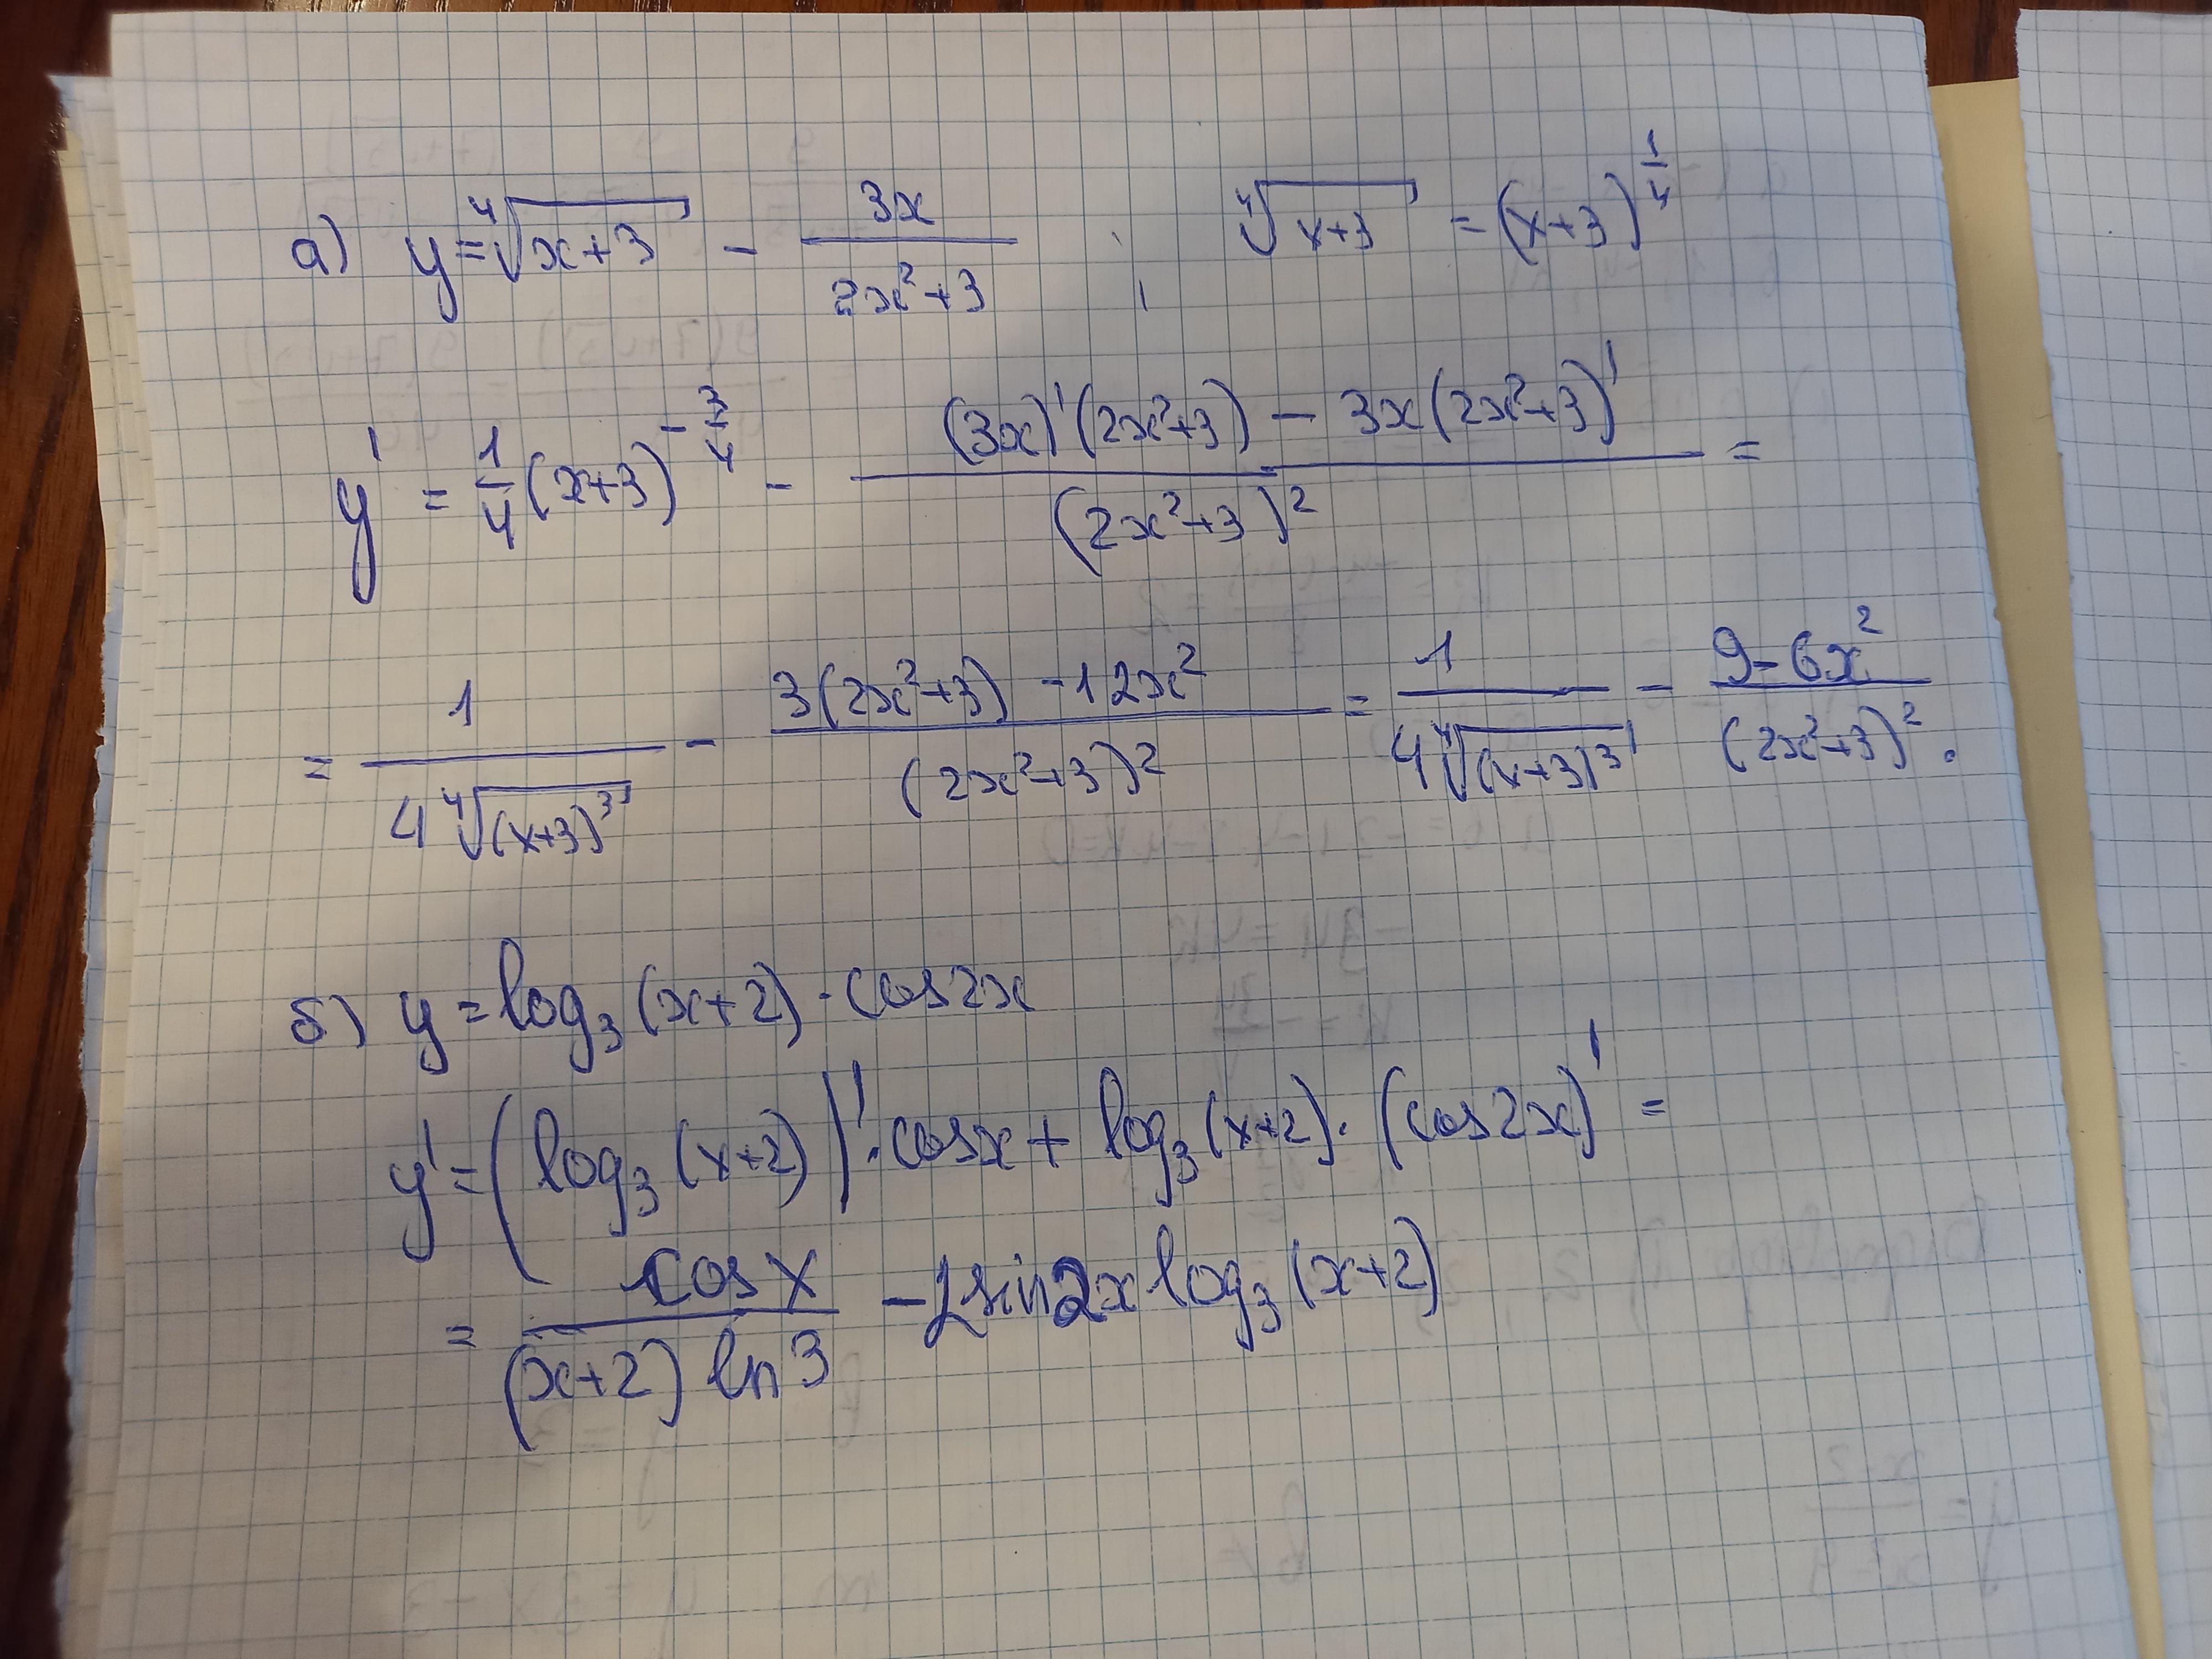 а) y = ⁴√(x+3) - 3x/(2x²+3) ; ⁴√(x+3) = (x+3)^(1/4)
y' = 1/4 (x+3)^(-3/4) - ((3x)'(2x²+3) - 3x(2x²+3)')/(2x²+3)² =
= 1/(4 ⁴√((x+3)³)) - (3(2x²+3) - 12x²)/(2x²+3)² = 1/(4 ⁴√((x+3)³)) - (9-6x²)/(2x²+3)².
б) y = log₃(x+2) · cos2x
y' = (log₃(x+2))' · cosx + log₃(x+2) · (cos2x)' =
= cosx/((x+2) ln3) - 2sin2x log₃(x+2)